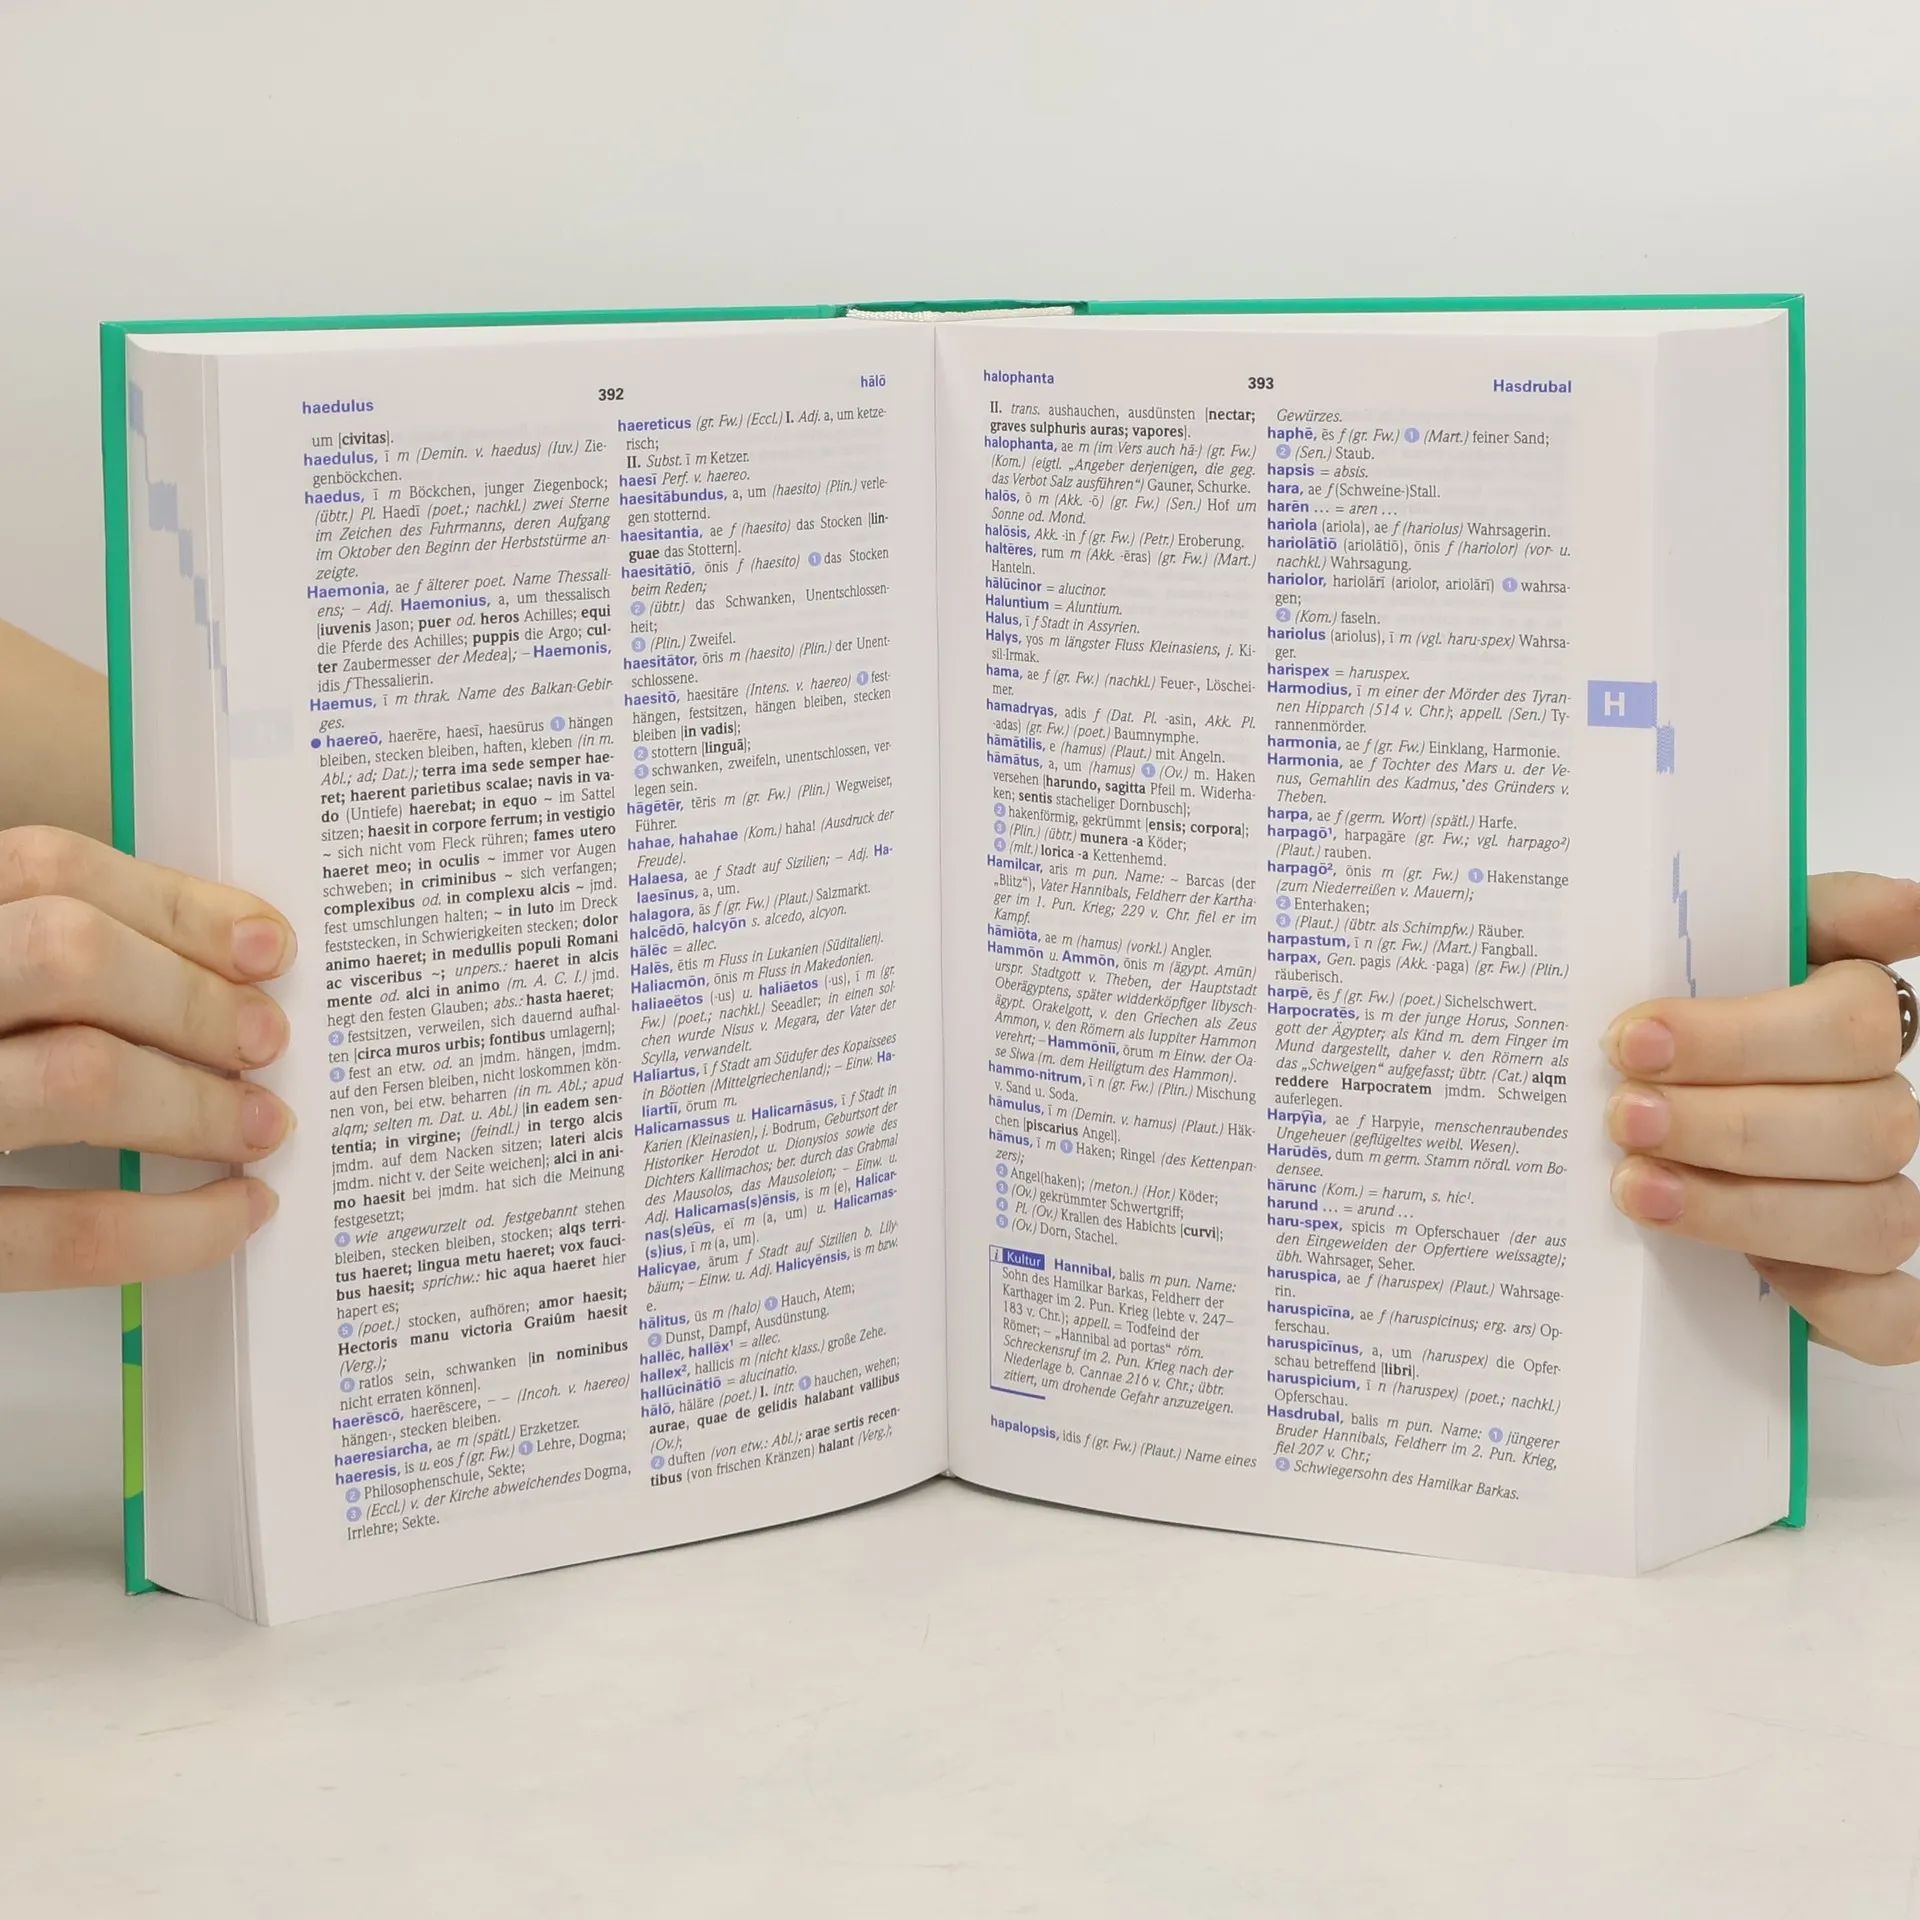 haedulus
392
hālō
um [civitas].
haedulus, ī m (Demin. v. haedus) (Iuv.) Zie-
genböckchen.
haedus, ī m Böckchen, junger Ziegenbock;
(übtr.) Pl. Haedī (poet.; nachkl.) zwei Sterne
im Zeichen des Fuhrmanns, deren Aufgang
im Oktober den Beginn der Herbststürme an-
zeigte.
Haemonia, ae f älterer poet. Name Thessali-
ens; – Adj. Haemonius, a, um thessalisch
[iuvenis Jason; puer od. heros Achilles; equi
die Pferde des Achilles; puppis die Argo; cul-
ter Zaubermesser der Medea]; – Haemonis,
idis f Thessalierin.
Haemus, ī m thrak. Name des Balkan-Gebir-
ges.
● haereō, haerēre, haesī, haesūrus ① hängen
bleiben, stecken bleiben, haften, kleben (in m.
Abl.; ad; Dat.); terra ima sede semper hae-
ret; haerent parietibus scalae; navis in va-
do (Untiefe) haerebat; in equo ~ im Sattel
sitzen; haesit in corpore ferrum; in vestigio
~ sich nicht vom Fleck rühren; fames utero
haeret meo; in oculis ~ immer vor Augen
schweben; in criminibus ~ sich verfangen;
complexibus od. in complexu alcis ~ jmd.
fest umschlungen halten; ~ in luto im Dreck
feststecken, in Schwierigkeiten stecken; dolor
animo haeret; in medullis populi Romani
ac visceribus ~; unpers.: haeret in alcis
mente od. alci in animo (m. A. C. I.) jmd.
hegt den festen Glauben; abs.: hasta haeret;
② festsitzen, verweilen, sich dauernd aufhal-
ten [circa muros urbis; fontibus umlagern];
③ fest an etw. od. an jmdm. hängen, jmdm.
auf den Fersen bleiben, nicht loskommen kön-
nen von, bei etw. beharren (in m. Abl.; apud
alqm; selten m. Dat. u. Abl.) [in eadem sen-
tentia; in virgine; (feindl.) in tergo alcis
jmdm. auf dem Nacken sitzen; lateri alcis
jmdm. nicht v. der Seite weichen]; alci in ani-
mo haesit bei jmdm. hat sich die Meinung
festgesetzt;
④ wie angewurzelt od. festgebannt stehen
bleiben, stecken bleiben, stocken; alqs terri-
tus haeret; lingua metu haeret; vox fauci-
bus haesit; sprichw.: hic aqua haeret hier
hapert es;
⑤ (poet.) stocken, aufhören; amor haesit;
Hectoris manu victoria Graiûm haesit
(Verg.);
⑥ ratlos sein, schwanken [in nominibus
nicht erraten können].
haerēscō, haerēscere, – – (Incoh. v. haereo)
hängen-, stecken bleiben.
haeresiarcha, ae m (spätl.) Erzketzer.
haeresis, is u. eos f (gr. Fw.) ① Lehre, Dogma;
② Philosophenschule, Sekte;
③ (Eccl.) v. der Kirche abweichendes Dogma,
Irrlehre; Sekte.
haereticus (gr. Fw.) (Eccl.) I. Adj. a, um ketze-
risch;
II. Subst. ī m Ketzer.
haesī Perf. v. haereo.
haesitābundus, a, um (haesito) (Plin.) verle-
gen stotternd.
haesitantia, ae f (haesito) das Stocken [lin-
guae das Stottern].
haesitātiō, ōnis f (haesito) ① das Stocken
beim Reden;
② (übtr.) das Schwanken, Unentschlossen-
heit;
③ (Plin.) Zweifel.
haesitātor, ōris m (haesito) (Plin.) der Unent-
schlossene.
haesitō, haesitāre (Intens. v. haereo) ① fest-
hängen, festsitzen, hängen bleiben, stecken
bleiben [in vadis];
② stottern [linguā];
③ schwanken, zweifeln, unentschlossen, ver-
legen sein.
hāgētēr, tēris m (gr. Fw.) (Plin.) Wegweiser,
Führer.
hahae, hahahae (Kom.) haha! (Ausdruck der
Freude).
Halaesa, ae f Stadt auf Sizilien; – Adj. Ha-
laesīnus, a, um.
halagora, ās f (gr. Fw.) (Plaut.) Salzmarkt.
halcēdō, halcyōn s. alcedo, alcyon.
hālēc = allec.
Halēs, ētis m Fluss in Lukanien (Süditalien).
Haliacmōn, ōnis m Fluss in Makedonien.
haliaeëtos (-us) u. haliāetos (-us), ī m (gr.
Fw.) (poet.; nachkl.) Seeadler; in einen sol-
chen wurde Nisus v. Megara, der Vater der
Scylla, verwandelt.
Haliartus, ī f Stadt am Südufer des Kopaissees
in Böotien (Mittelgriechenland); – Einw. Ha-
liartiī, ōrum m.
Halicarnassus u. Halicarnāsus, ī f Stadt in
Karien (Kleinasien), j. Bodrum, Geburtsort der
Historiker Herodot u. Dionysios sowie des
Dichters Kallimachos; ber. durch das Grabmal
des Mausolos, das Mausoleion; – Einw. u.
Adj. Halicarnas(s)ēnsis, is m (e), Halicar-
nas(s)eūs, eī m (a, um) u. Halicarnas-
(s)ius, ī m (a, um).
Halicyae, ārum f Stadt auf Sizilien b. Lily-
bäum; – Einw. u. Adj. Halicyēnsis, is m bzw.
e.
hālitus, ūs m (halo) ① Hauch, Atem;
② Dunst, Dampf, Ausdünstung.
hallēc, hallēx¹ = allec.
hallex², hallicis m (nicht klass.) große Zehe.
hallūcinātiō = alucinatio.
hālō, hālāre (poet.) I. intr. ① hauchen, wehen;
aurae, quae de gelidis halabant vallibus
(Ov.);
② duften (von etw.: Abl.); arae sertis recen-
tibus (von frischen Kränzen) halant (Verg.);
halophanta
393
Hasdrubal
II. trans. aushauchen, ausdünsten [nectar;
graves sulphuris auras; vapores].
halophanta, ae m (im Vers auch hā-) (gr. Fw.)
(Kom.) (eigtl. „Angeber derjenigen, die geg.
das Verbot Salz ausführen“) Gauner, Schurke.
halōs, ō m (Akk. -ō) (gr. Fw.) (Sen.) Hof um
Sonne od. Mond.
halōsis, Akk. -in f (gr. Fw.) (Petr.) Eroberung.
haltēres, rum m (Akk. -ēras) (gr. Fw.) (Mart.)
Hanteln.
hālūcinor = alucinor.
Haluntium = Aluntium.
Halus, ī f Stadt in Assyrien.
Halys, yos m längster Fluss Kleinasiens, j. Ki-
sil-Irmak.
hama, ae f (gr. Fw.) (nachkl.) Feuer-, Löschei-
mer.
hamadryas, adis f (Dat. Pl. -asin, Akk. Pl.
-adas) (gr. Fw.) (poet.) Baumnymphe.
hāmātilis, e (hamus) (Plaut.) mit Angeln.
hāmātus, a, um (hamus) ① (Ov.) m. Haken
versehen [harundo, sagitta Pfeil m. Widerha-
ken; sentis stacheliger Dornbusch];
② hakenförmig, gekrümmt [ensis; corpora];
③ (Plin.) (übtr.) munera -a Köder;
④ (mlt.) lorica -a Kettenhemd.
Hamilcar, aris m pun. Name: ~ Barcas (der
„Blitz“), Vater Hannibals, Feldherr der Kartha-
ger im 1. Pun. Krieg; 229 v. Chr. fiel er im
Kampf.
hāmiōta, ae m (hamus) (vorkl.) Angler.
Hammōn u. Ammōn, ōnis m (ägypt. Amūn)
urspr. Stadtgott v. Theben, der Hauptstadt
Oberägyptens, später widderköpfiger libysch-
ägypt. Orakelgott, v. den Griechen als Zeus
Ammon, v. den Römern als Iuppiter Hammon
verehrt; – Hammōniī, ōrum m Einw. der Oa-
se Siwa (m. dem Heiligtum des Hammon).
hammo-nitrum, ī n (gr. Fw.) (Plin.) Mischung
v. Sand u. Soda.
hāmulus, ī m (Demin. v. hamus) (Plaut.) Häk-
chen [piscarius Angel].
hāmus, ī m ① Haken; Ringel (des Kettenpan-
zers);
② Angel(haken); (meton.) (Hor.) Köder;
③ (Ov.) gekrümmter Schwertgriff;
④ Pl. (Ov.) Krallen des Habichts [curvi];
⑤ (Ov.) Dorn, Stachel.
i Kultur Hannibal, balis m pun. Name:
Sohn des Hamilkar Barkas, Feldherr der
Karthager im 2. Pun. Krieg (lebte v. 247–
183 v. Chr.); appell. = Todfeind der
Römer; – „Hannibal ad portas“ röm.
Schreckensruf im 2. Pun. Krieg nach der
Niederlage b. Cannae 216 v. Chr.; übtr.
zitiert, um drohende Gefahr anzuzeigen.
hapalopsis, idis f (gr. Fw.) (Plaut.) Name eines
Gewürzes.
haphē, ēs f (gr. Fw.) ① (Mart.) feiner Sand;
② (Sen.) Staub.
hapsis = absis.
hara, ae f (Schweine-)Stall.
harēn ... = aren ...
hariola (ariola), ae f (hariolus) Wahrsagerin.
hariolātiō (ariolātiō), ōnis f (hariolor) (vor- u.
nachkl.) Wahrsagung.
hariolor, hariolārī (ariolor, ariolārī) ① wahrsa-
gen;
② (Kom.) faseln.
hariolus (ariolus), ī m (vgl. haru-spex) Wahrsa-
ger.
harispex = haruspex.
Harmodius, ī m einer der Mörder des Tyran-
nen Hipparch (514 v. Chr.); appell. (Sen.) Ty-
rannenmörder.
harmonia, ae f (gr. Fw.) Einklang, Harmonie.
Harmonia, ae f Tochter des Mars u. der Ve-
nus, Gemahlin des Kadmus, des Gründers v.
Theben.
harpa, ae f (germ. Wort) (spätl.) Harfe.
harpagō¹, harpagāre (gr. Fw.; vgl. harpago²)
(Plaut.) rauben.
harpagō², ōnis m (gr. Fw.) ① Hakenstange
(zum Niederreißen v. Mauern);
② Enterhaken;
③ (Plaut.) (übtr. als Schimpfw.) Räuber.
harpastum, ī n (gr. Fw.) (Mart.) Fangball.
harpax, Gen. pagis (Akk. -paga) (gr. Fw.) (Plin.)
räuberisch.
harpē, ēs f (gr. Fw.) (poet.) Sichelschwert.
Harpocratēs, is m der junge Horus, Sonnen-
gott der Ägypter; als Kind m. dem Finger im
Mund dargestellt, daher v. den Römern als
das „Schweigen“ aufgefasst; übtr. (Cat.) alqm
reddere Harpocratem jmdm. Schweigen
auferlegen.
Harpȳia, ae f Harpyie, menschenraubendes
Ungeheuer (geflügeltes weibl. Wesen).
Harūdēs, dum m germ. Stamm nördl. vom Bo-
densee.
hārunc (Kom.) = harum, s. hic¹.
harund ... = arund ...
haru-spex, spicis m Opferschauer (der aus
den Eingeweiden der Opfertiere weissagte);
übh. Wahrsager, Seher.
haruspica, ae f (haruspex) (Plaut.) Wahrsage-
rin.
haruspicīna, ae f (haruspicinus; erg. ars) Op-
ferschau.
haruspicīnus, a, um (haruspex) die Opfer-
schau betreffend [libri].
haruspicium, ī n (haruspex) (poet.; nachkl.)
Opferschau.
Hasdrubal, balis m pun. Name: ① jüngerer
Bruder Hannibals, Feldherr im 2. Pun. Krieg,
fiel 207 v. Chr.;
② Schwiegersohn des Hamilkar Barkas.
H